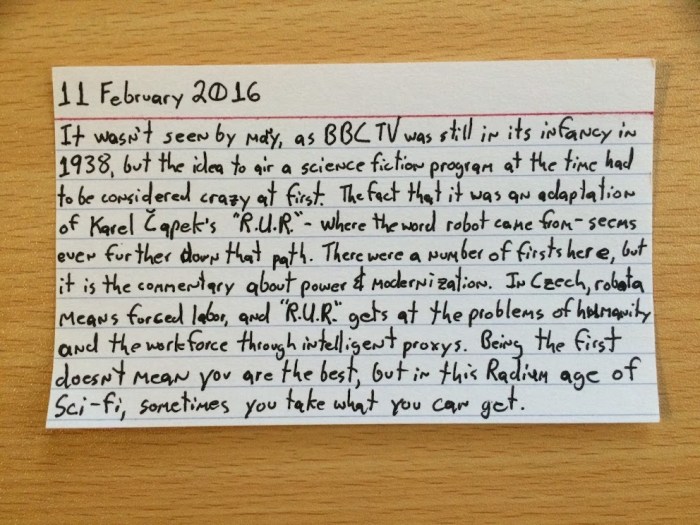 11 February 2016
It wasn't seen by many, as BBC TV was still in its infancy in
1938, but the idea to air a science fiction program at the time had
to be considered crazy at first. The fact that it was an adaptation
of Karel Čapek's "R.U.R." - where the word robot came from - seems
even further down that path. There were a number of firsts here, but
it is the commentary about power & modernization. In Czech, robota
means forced labor, and "R.U.R." gets at the problems of humanity
and the workforce through intelligent proxys. Being the first
doesn't mean you are the best, but in this Radium age of
Sci-fi, sometimes you take what you can get.